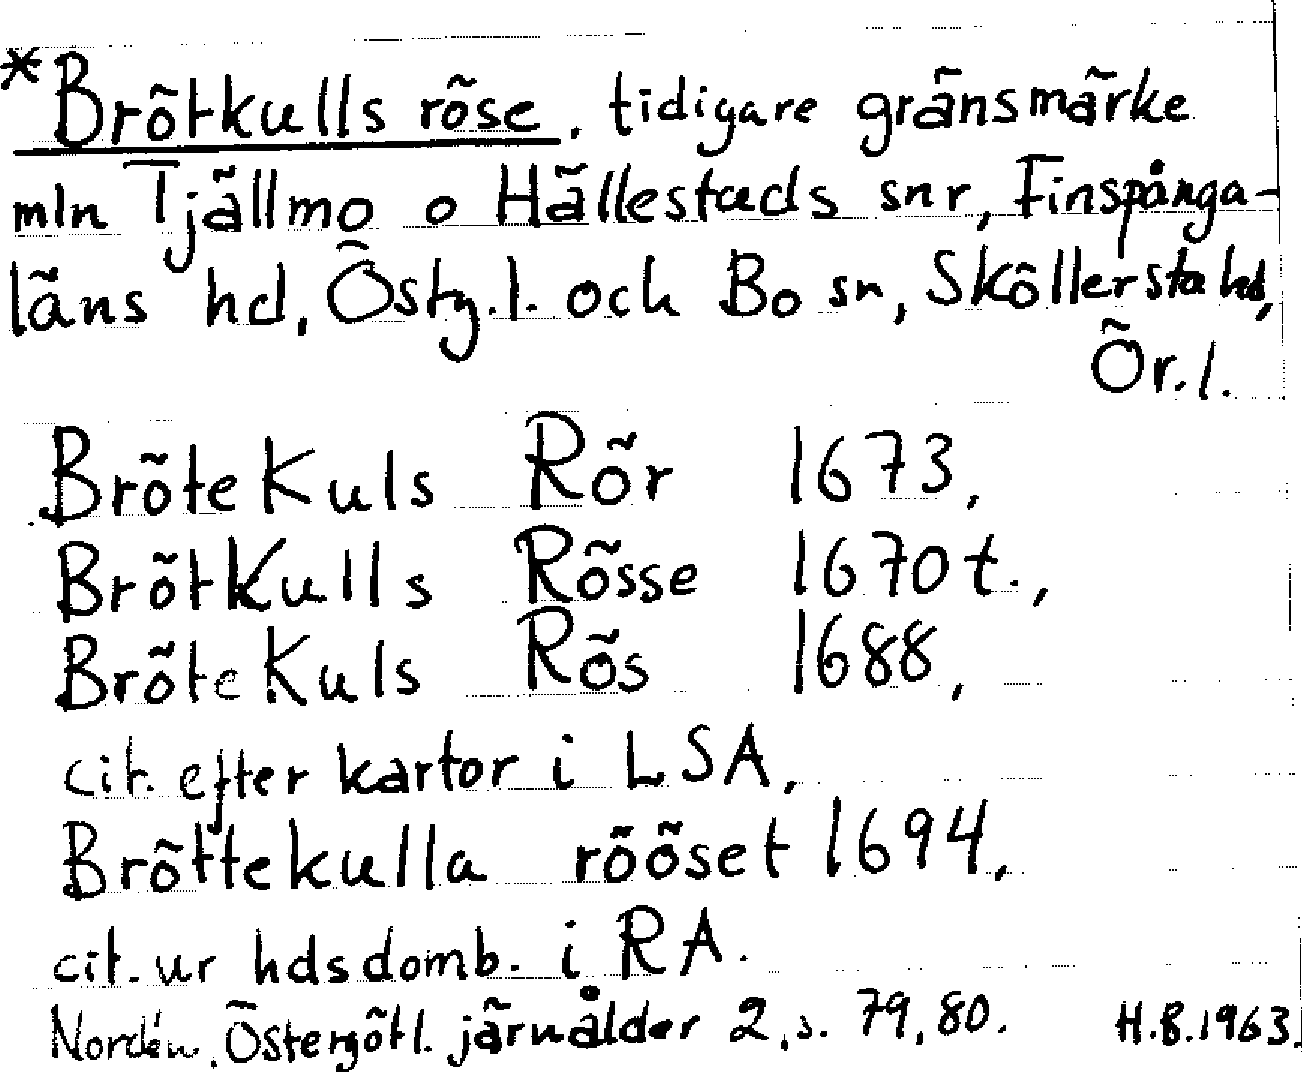 *Brötkulls röse, tidigare gränsmärke
mln Tjällmo o Hällestads snr, Finspånga-
läns hd, Östg.l. och Bo sn, Sköllersta hd,
Ör.l.
BröteKuls Rör 1673,
BrötKulls Rösse 1670t.,
BröteKuls Rös 1688,
cit. efter kartor i LSA,
Bröttekulla rööset 1694,
cit. ur hdsdomb. i RA.
Nordén, Östergötl. järnålder 2, s. 79, 80. H.B.1963.